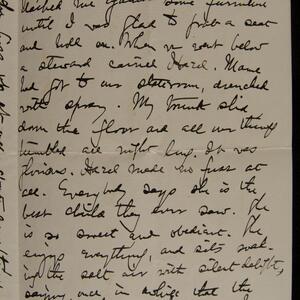 dashed me against some furniture
until I was glad to grab a seat
and hold on. When we went below
a steward carried Hazel. Mama
had got to our stateroom, drenched
with spray. My trunk slid
down the floor and all our things
tumbled all night long. It was
glorious. Hazel made no fuss at
all. Everybody says she is the
best child they ever saw. She
is so sweet and obedient. She
enjoys everything, and sits soak-
ing the salt air with silent delight,
saying, once in awhile that the